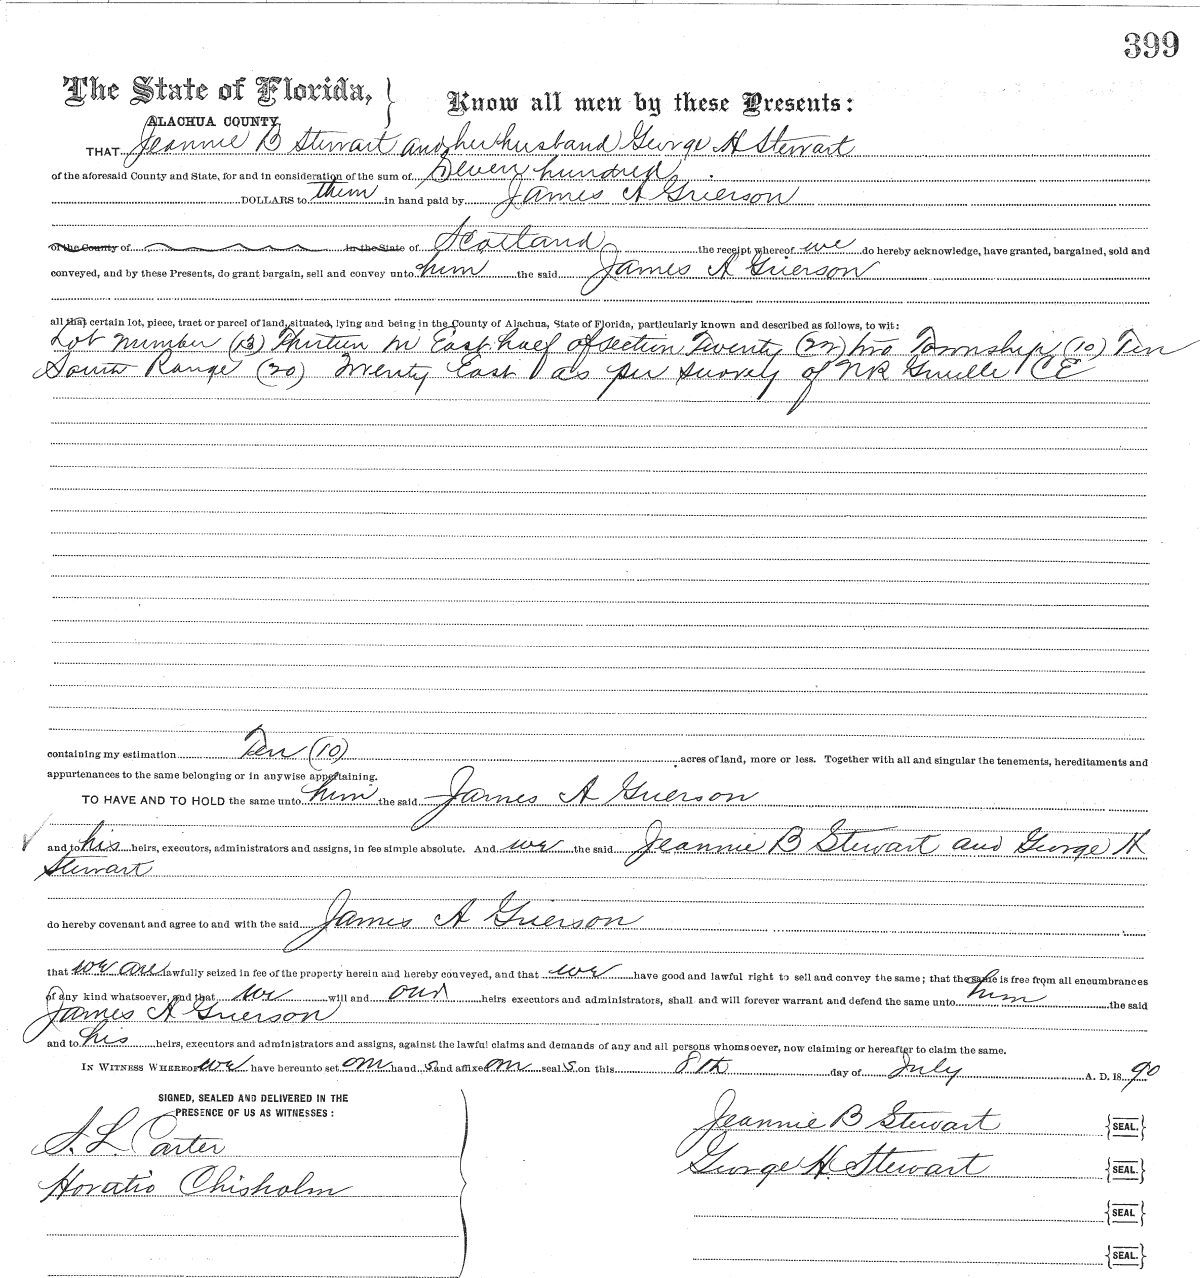 399
The State of Florida, }
ALACHUA COUNTY.
Know all men by these Presents:
THAT Jeannie B Stewart and her husband George H Stewart
of the aforesaid County and State, for and in consideration of the sum of Seven hundred
DOLLARS to them in hand paid by James A Grierson
of the County of in the State of Scotland the receipt whereof we do hereby acknowledge, have granted, bargained, sold and
conveyed, and by these Presents, do grant bargain, sell and convey unto him the said James A Grierson
all that certain lot, piece, tract or parcel of land, situated, lying and being in the County of Alachua, State of Florida, particularly known and described as follows, to wit:
Lot number (13) Thirteen in East half of section Twenty (22) two Township (10) Ten
South Range (20) Twenty East as per survey of NR Gruelle CE
containing my estimation Ten (10) acres of land, more or less. Together with all and singular the tenements, hereditaments and
appurtenances to the same belonging or in anywise appertaining.
TO HAVE AND TO HOLD the same unto him the said James A Grierson
and to his heirs, executors, administrators and assigns, in fee simple absolute. And we the said Jeannie B Stewart and George H
Stewart
do hereby covenant and agree to and with the said James A Grierson
that we are lawfully seized in fee of the property herein and hereby conveyed, and that we have good and lawful right to sell and convey the same; that the same is free from all encumbrances
of any kind whatsoever, and that we will and our heirs executors and administrators, shall and will forever warrant and defend the same unto him the said
James A Grierson
and to his heirs, executors and administrators and assigns, against the lawful claims and demands of any and all persons whomsoever, now claiming or hereafter to claim the same.
IN WITNESS WHEREOF we have hereunto set our hand s and affixed our seal s on this 8th day of July A. D. 18 90
SIGNED, SEALED AND DELIVERED IN THE
PRESENCE OF US AS WITNESSES:
S. L. Carter
Horatio Chisholm
Jeannie B Stewart {SEAL.}
George H. Stewart {SEAL.}
{SEAL.}
{SEAL.}